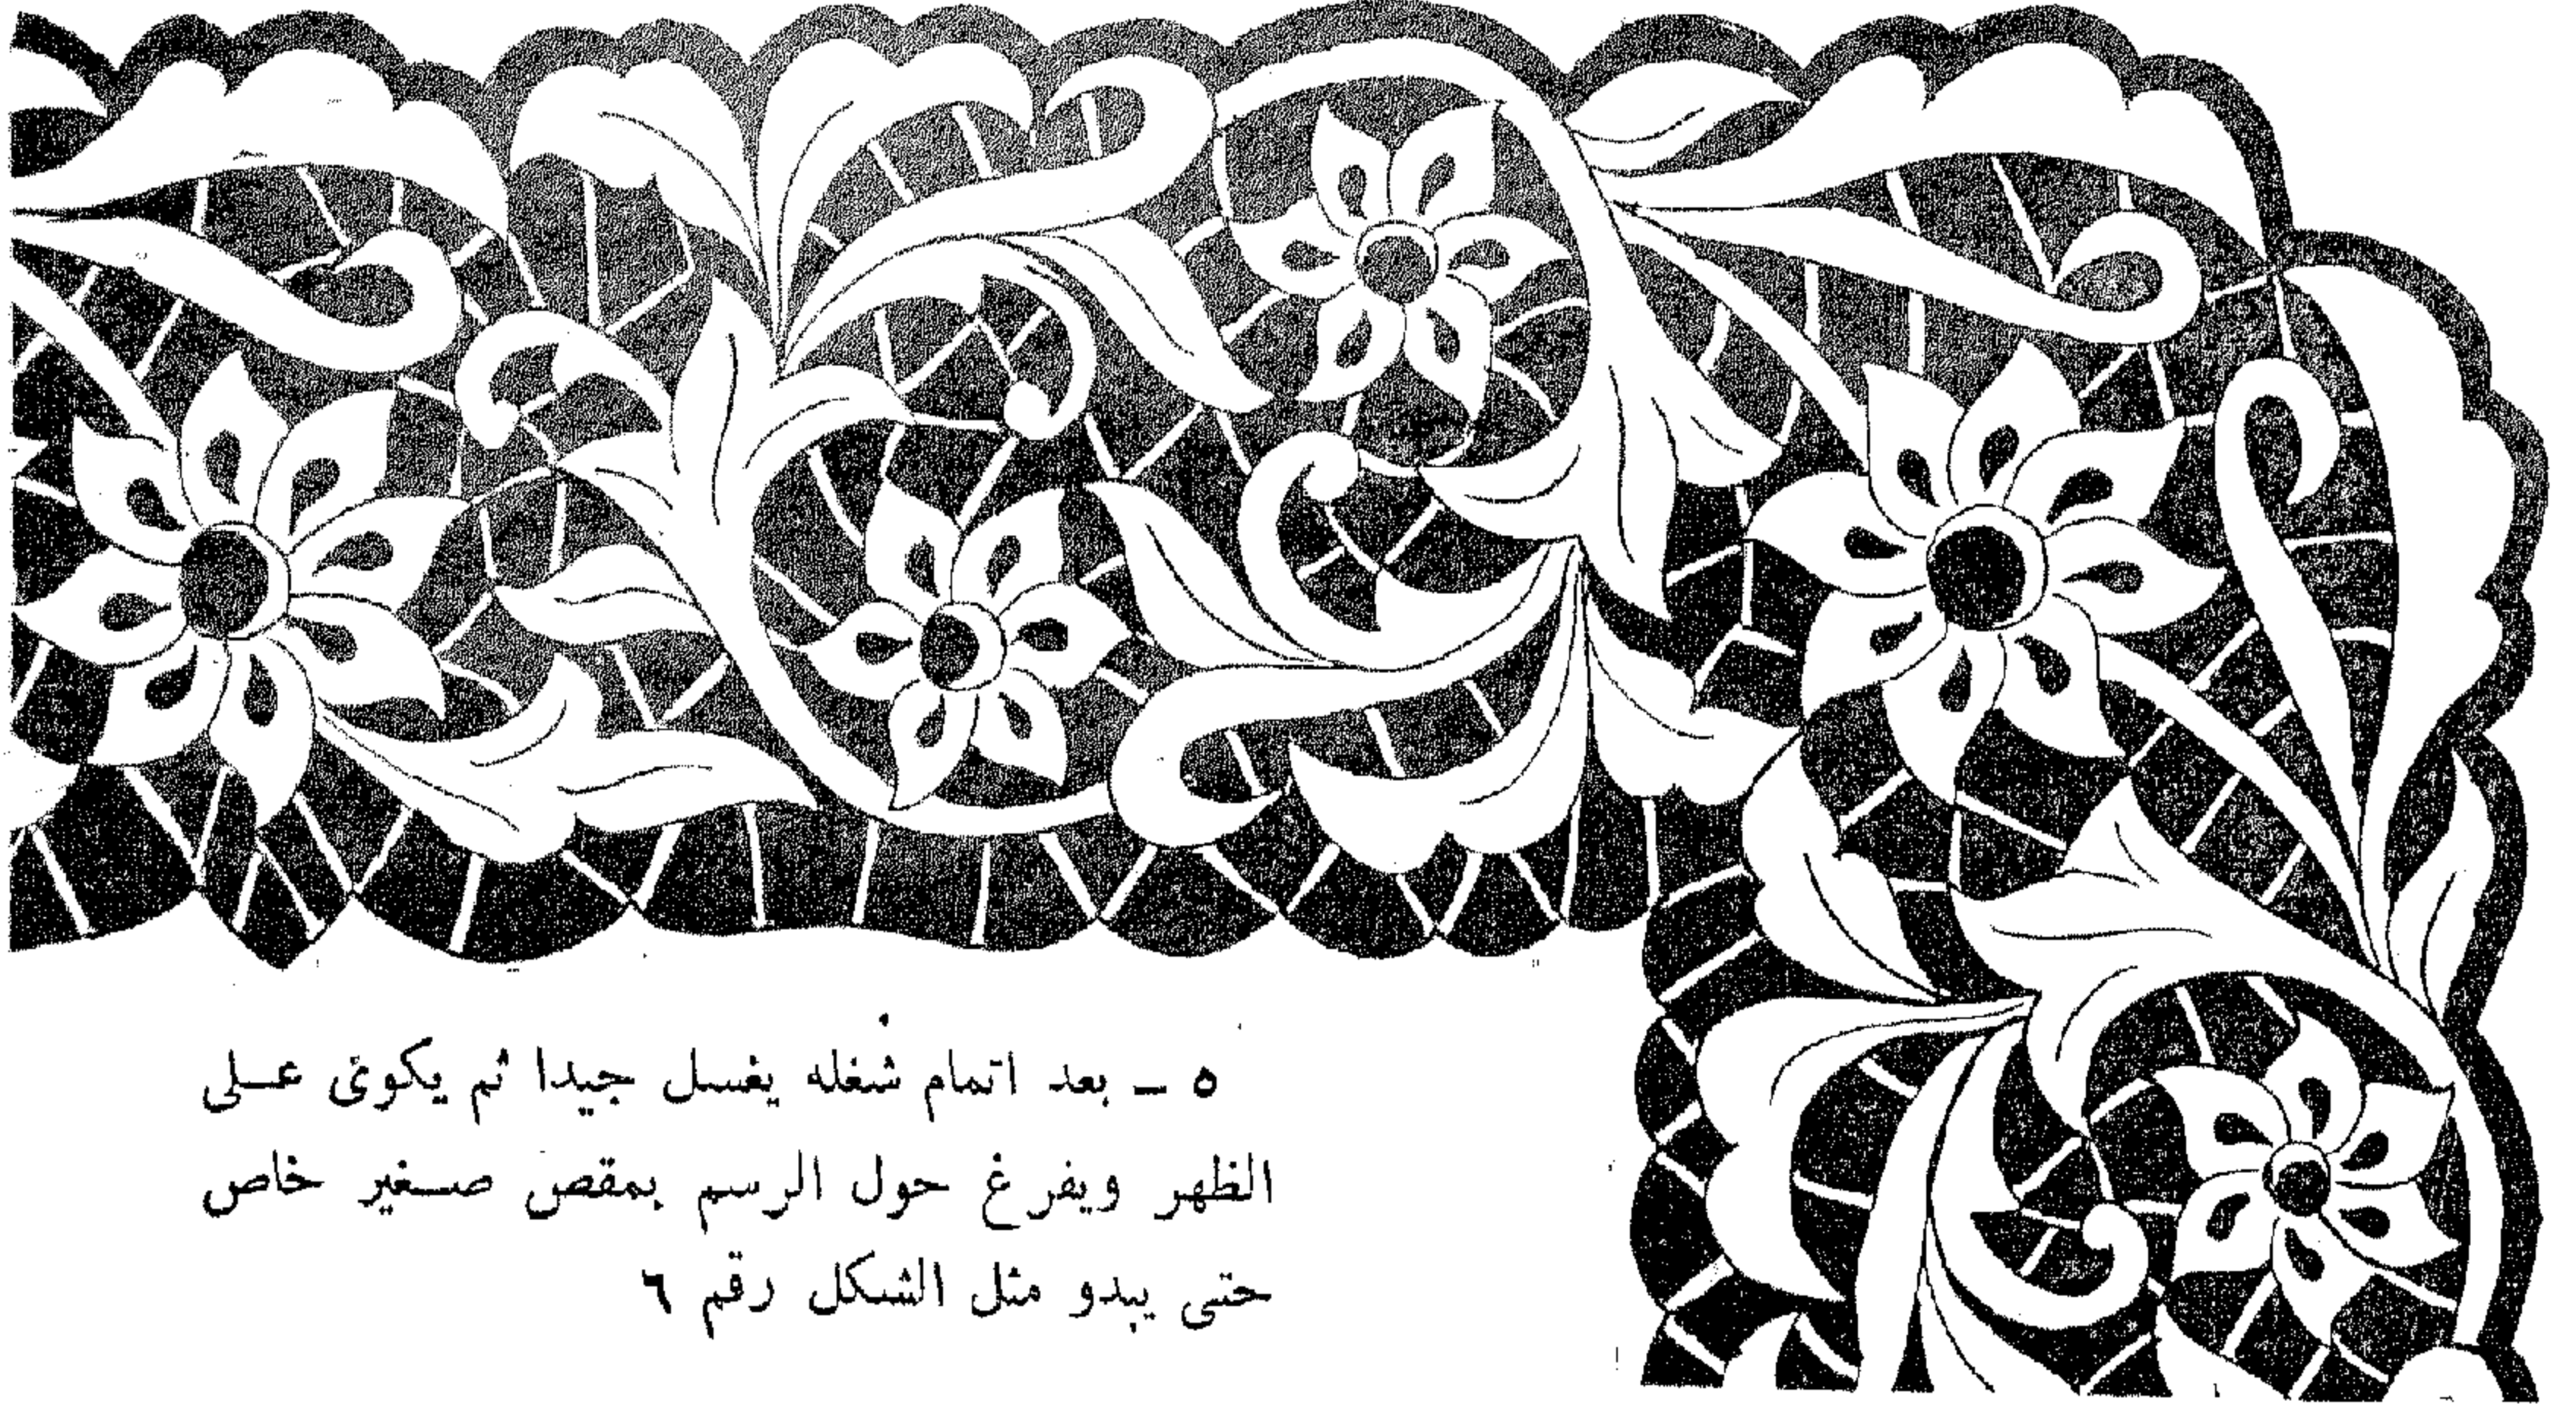 ٥ ــ بعد اتمام شغله يغسل جيدا ثم يكوى عــلى
الظهر ويفرغ حول الرسم بمقص صــغير خاص
حتى يبدو مثل الشكل رقم ٦